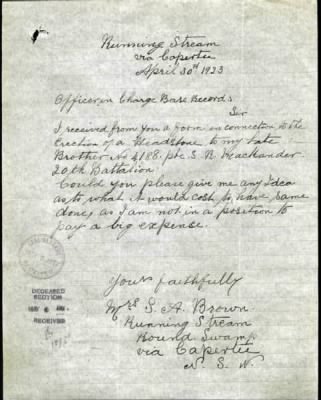 Running Stream
via Capertee
April 30th 1923
Officer in Charge Base Records
Sir
I received from you a form in connection to the
Erection of a Headstone to my late
Brother No 4188. pte. S. R.
20th Battalion
Could you please give me any idea
as to what it would cost to have same
done, as I am not in a position to
pay a big expense.
Yours faithfully
Mrs S. A. Brown
Running Stream
Round Swamp
via Capertee
N. S. W.
DECEASED
SECTION
MAY
RECEIVED